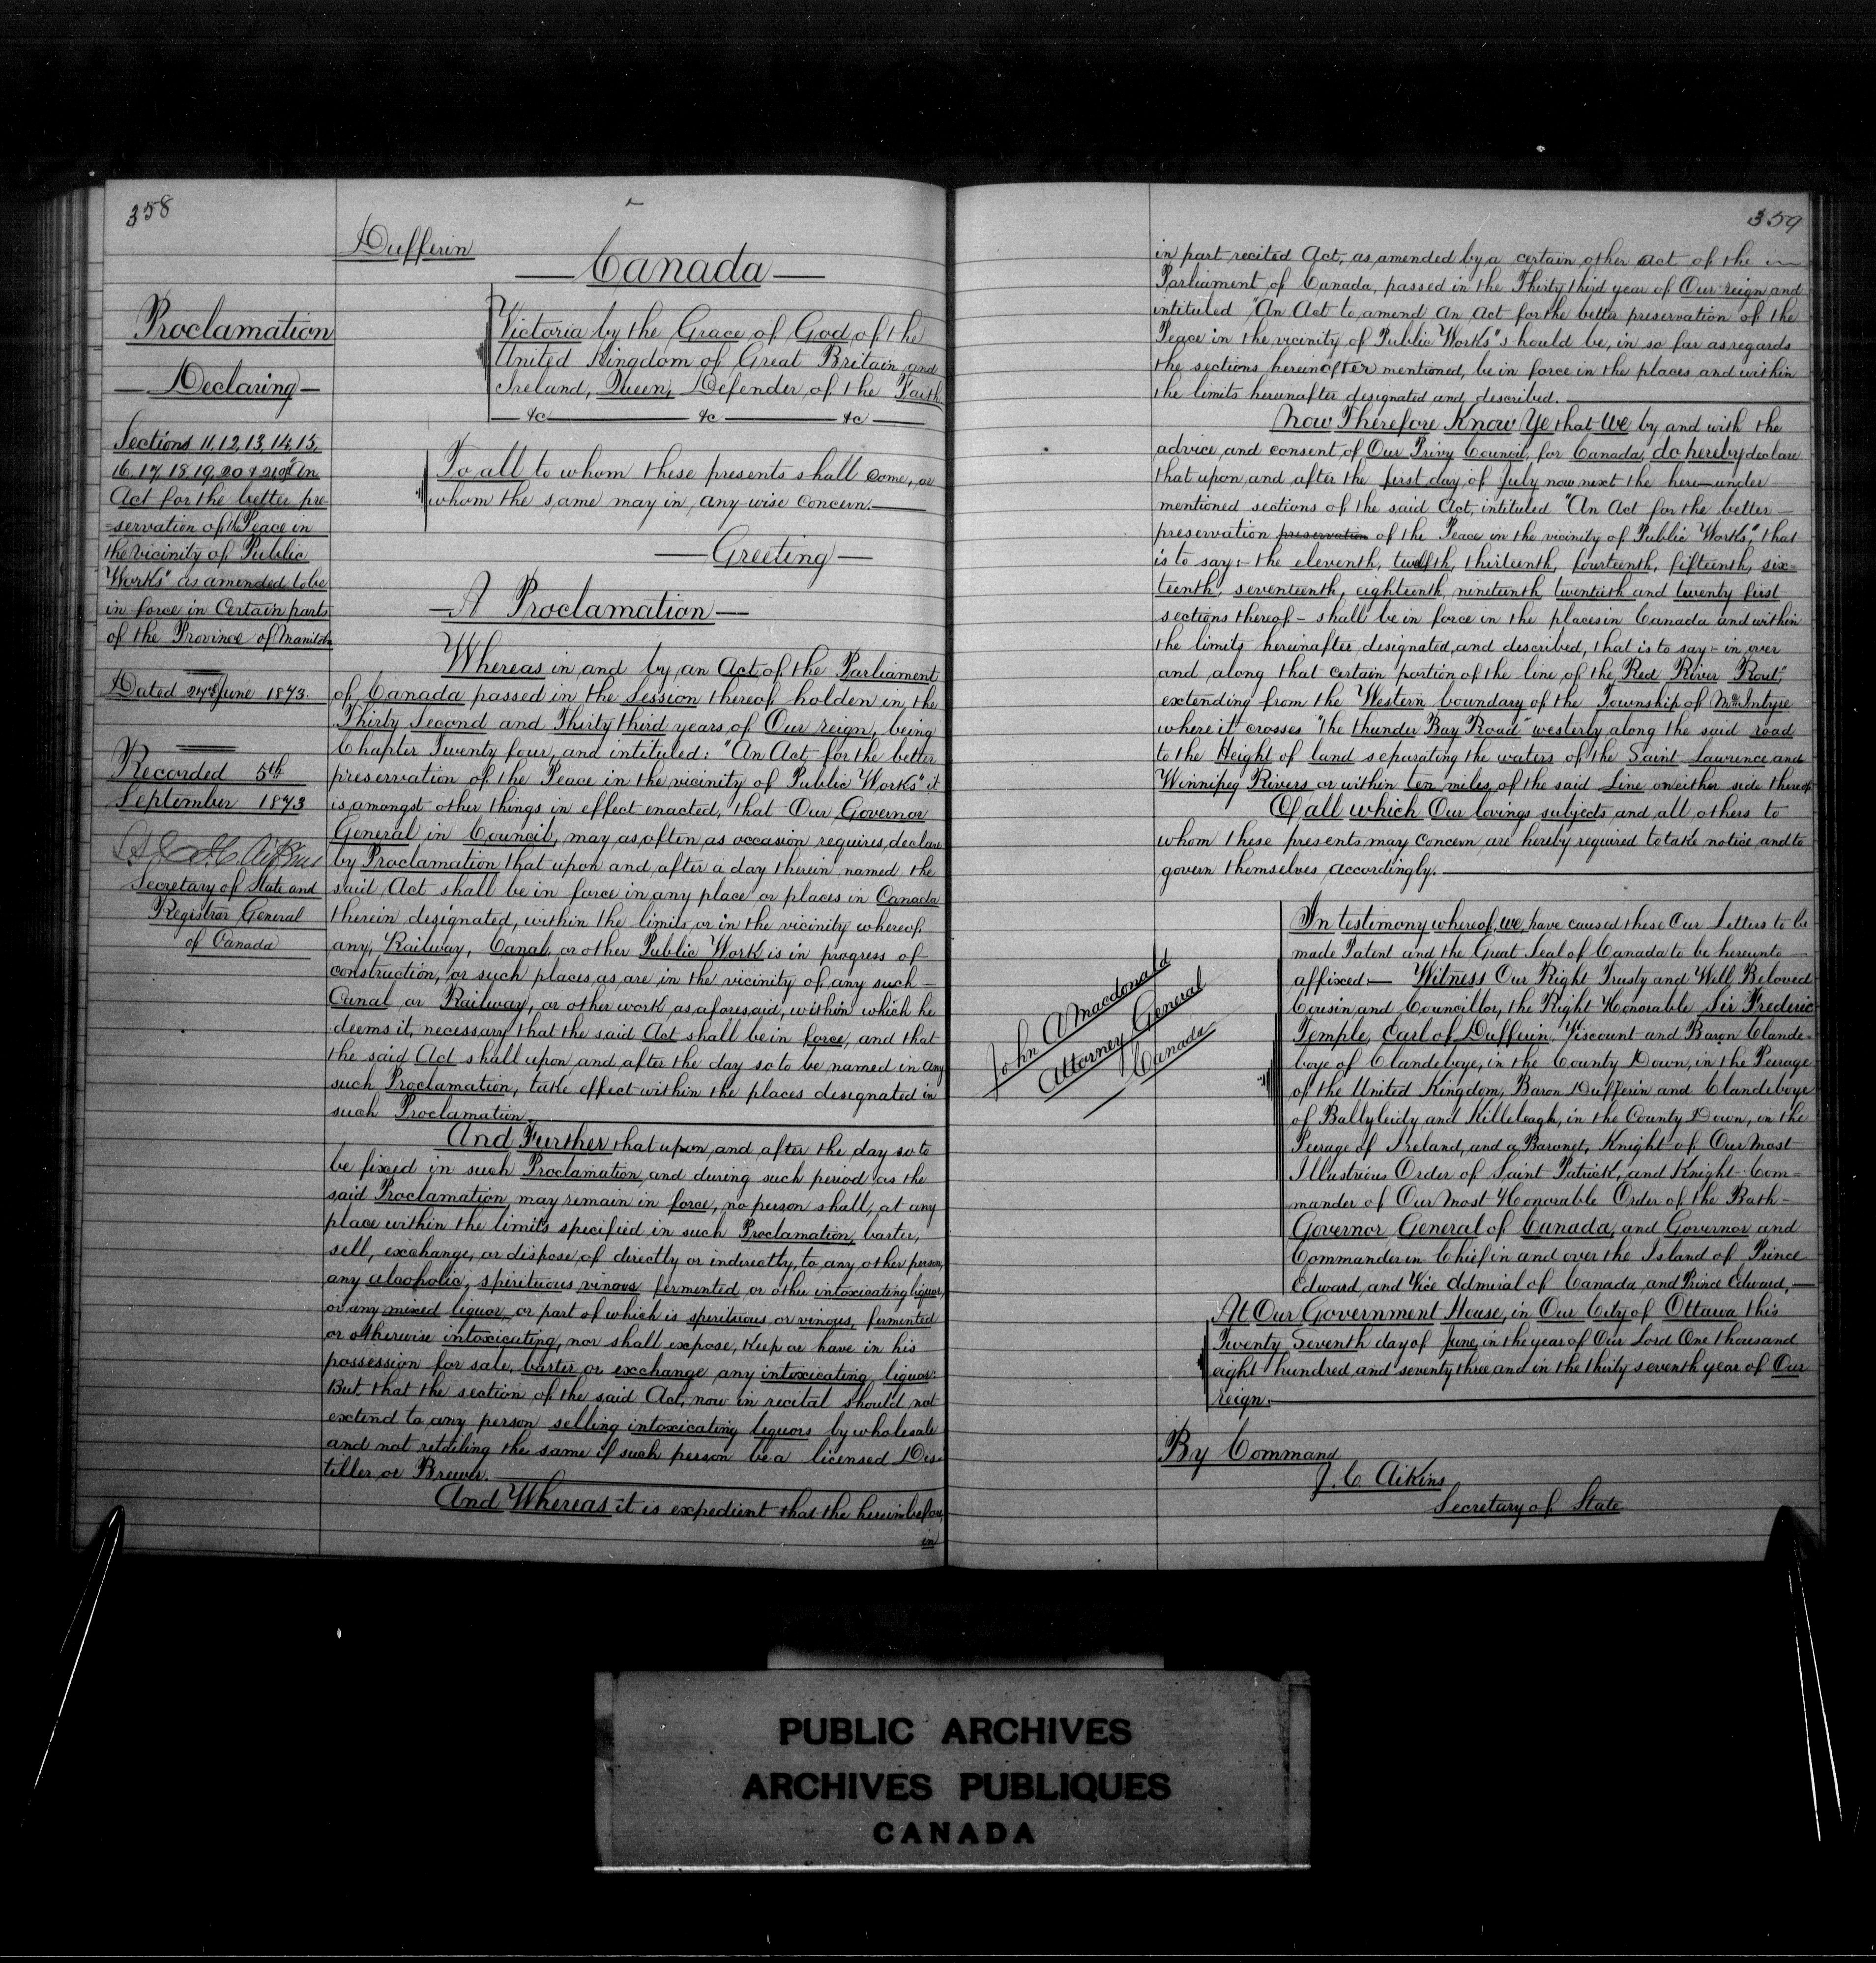 358
Dufferin
Canada
Proclamation
Declaring
Sections 11, 12, 13, 14, 15,
16. 17. 18. 19, 20 & 21 of "An
Act for the better pre
=servation of the Peace in
the vicinity of Public
Works" as amended to be
in force in Certain parts
of the Province of Manitoba
Dated 27th June 1873.
Recorded 5th
September 1873
Secretary of State and
Registrar General
of Canada
Victoria by the Grace of God, of the
United Kingdom of Great Britain and
Ireland, Queen, Defender of the Faith.
&c &c &c
To all to whom these presents shall come, or
whom the same may in any wise concern.
Greeting
A Proclamation
Whereas in and by an Act of the Parliament
of Canada passed in the Session thereof holden in the
Thirty Second and Thirty third years of Our reign, being
Chapter Twenty four, and intituled: "An Act, for the better
preservation of the Peace in the vicinity of Public Works" it
is amongst other things in effect enacted, that Our Governor
General in Council, may as often as occasion requires, declare
by Proclamation that upon and after a day therein named the
said Act shall be in force in any place or places in Canada
therein designated, within the limits or in the vicinity whereof
any, Railway, Canal or other Public Work is in progress of
construction, or such places as are in the vicinity of any such
Canal or Railway, or other work as aforesaid, within which he
deems it, necessary that the said Act shall be in force, and that
the said Act shall upon and after the day so to be named in any
such Proclamation, take effect within the places designated in
such Proclamation
And Further that upon and after the day so to
be fixed in such Proclamation, and during such period as the
said Proclamation may remain in force, no person shall, at any
place within the limits specified in such Proclamation, barter,
sell, exchange, or dispose of directly or indirectly, to any other person,
any alcoholic, spirituous vinous fermented or other intoxicating liquor,
or any mixed liquor, or part of which is spirituous or vinous, fermented
or otherwise intoxicating, nor shall expose, Keep or have in his
possession for sale, barter or exchange any intoxicating liquor.
But that the section of the said Act, now in recital should not
extend to any person selling intoxicating liquors by wholesale
and not retailing the same if such person be a licensed Dis
tiller or Brewer.
And Whereas it is expedient that the hereinbefore,
in
359
in part recited Act, as amended by a certain other Act of the
Parliament of Canada, passed in the Thirty third year of Our reign and
intituled "An Act to amend An Act for the better preservation of the
Peace in the vicinity of Public Works" should be, in so far as regards
the sections hereinafter mentioned, be in force in the places and within
the limits hereinafter designated and described.
Now Therefore Know Ye that We by and with the
advice and consent of Our Privy Council, for Canada, do hereby declare
that upon, and after the first day of July now next the here-under
mentioned sections of the said Act, intituled "An Act for the better
preservation preservation of the Peace in the vicinity of Public Works", that
is to say:- the eleventh, twelfth, thirteenth, fourteenth, fifteenth, six=
teenth, seventeenth, eighteenth, nineteenth, twentieth and twenty first
sections thereof - shall be in force in the places in Canada and within
the limits hereinafter designated, and described, that is to say - in over
and along that certain portion of the line of the Red River Rout,"
extending from the Western boundary of the Township of McIntyre
where it crosses "the thunder Bay Road" westerly along the said road
to the Height of land separating the waters of the Saint Lawrence and
Winnipeg Rivers or within ten miles of the said Line on either side thereof
Of all which Our lovings subjects and all others to
whom these presents may concern are hereby required to take notice and to
govern themselves accordingly.
John A Macdonald
Attorney General
Canada
In testimony whereof, we have caused these Our Letters to be
made Patent and the Great Seal of Canada to be hereunto
affixed:- Witness Our Right Trusty and Well Beloved
Cousin and Councillor, the Right Honorable Sir Frederic
Temple, Earl of Dufferin, Viscount and Baron Clande=
boye of Clandeboye, in the County Down, in the Peerage
of the United Kingdom, Baron Dufferin and Clandeboye
of Ballyleidy and Killeleagh, in the County Down, in the
Peerage of Ireland, and a Baronet, Knight of Our Most
Illustrious Order of Saint Patrick, and Knight Com=
mander of Our Most Honorable Order of the Bath
Governor General of Canada, and Governor and
Commander in Chief in and over the Island of Prince
Edward, and Vice Admiral of Canada and Prince Edward,
At Our Government House, in Our City of Ottawa this
Twenty Seventh day of June, in the year of Our Lord One thousand
eight hundred and seventy three and in the thirty seventh year of Our
reign.
By Command
J. C. Aikins
Secretary of State
PUBLIC ARCHIVES
ARCHIVES PUBLIQUES
CANADA